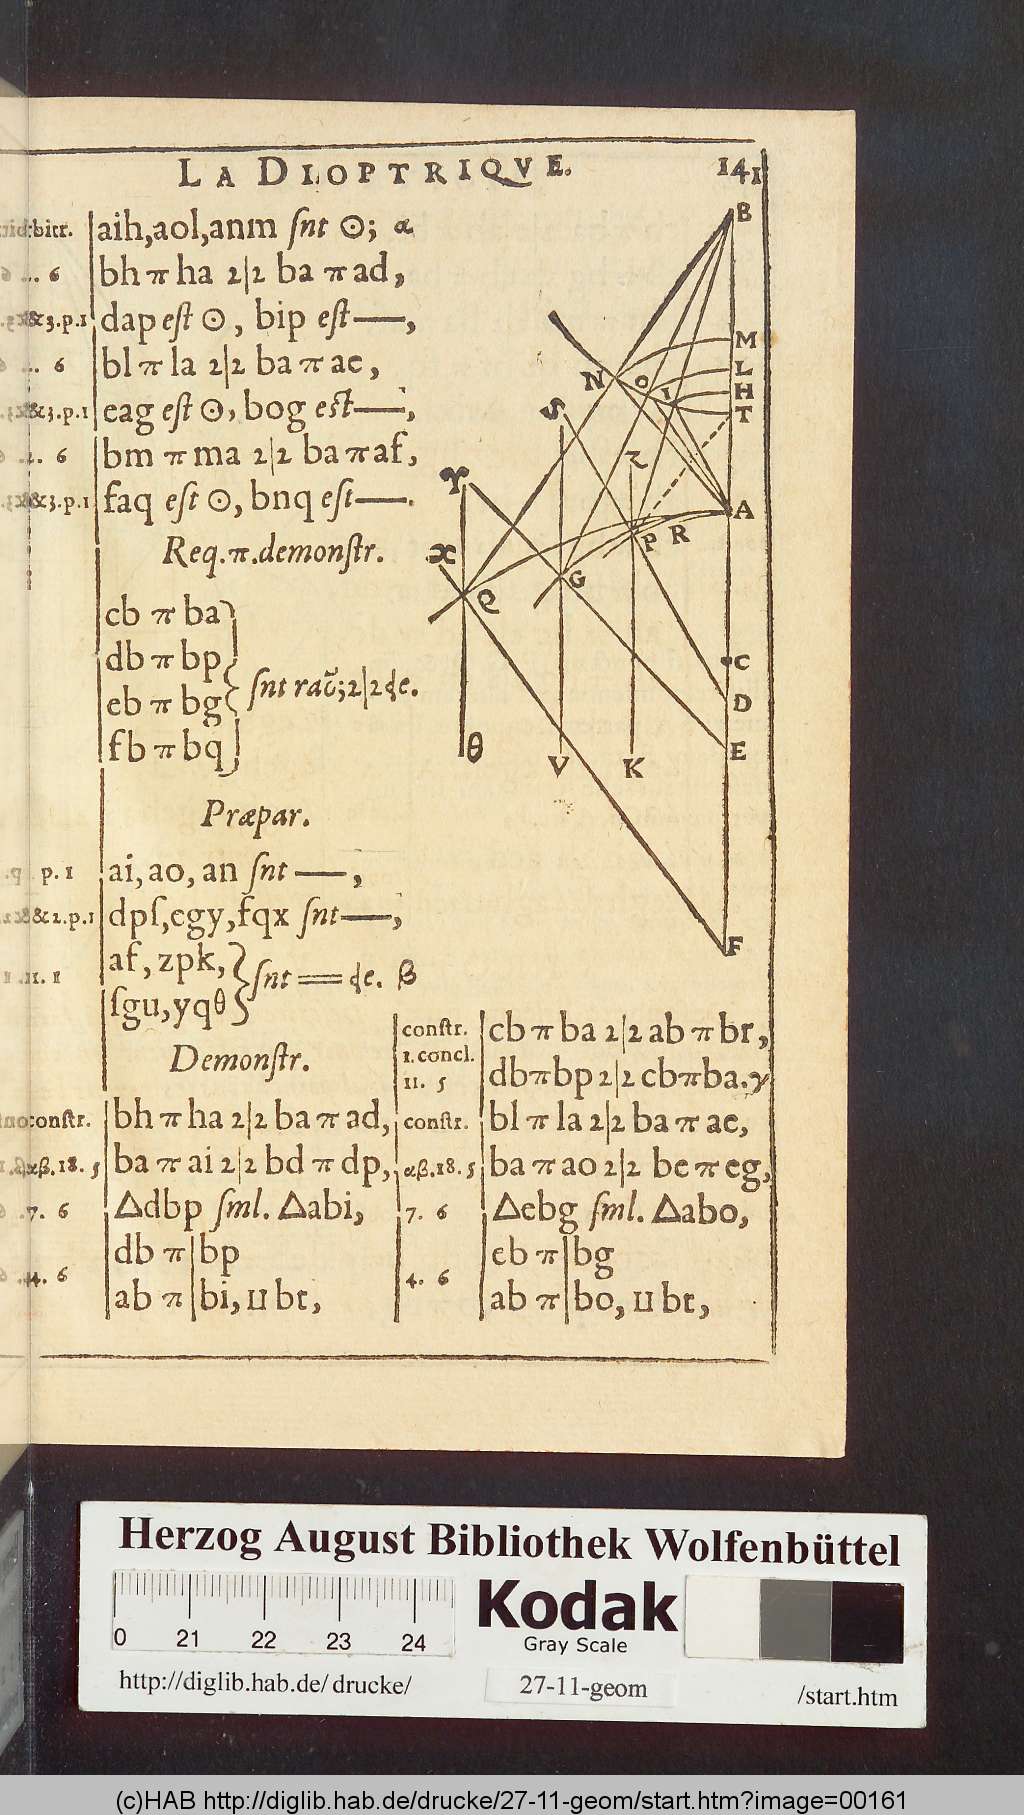 LA DIOPTRIQVE. 141
bitr. aih,aol,anm ſnt ⊙; α
6 ... 6 bh π ha 2|2 ba π ad,
&3.p.1 dap eſt ⊙, bip eſt —,
... 6 bl π la 2|2 ba π ae,
&3.p.1 eag eſt ⊙, bog eſt —,
6 bm π ma 2|2 ba π af,
&3.p.1 faq eſt ⊙, bnq eſt —.
Req. π. demonſtr.
cb π ba
db π bp
eb π bg
ſnt raõ; 2|2 de.
fb π bq
Præpar.
p. 1 ai, ao, an ſnt —,
&2.p.1 dpſ, egy, fqx ſnt —,
af, zpk,
11. 1 ſnt == de. β
ſgu, yqθ
Demonſtr.
conſtr. bh π ha 2|2 ba π ad,
αβ.18. 5 ba π ai 2|2 bd π dp,
7. 6 △dbp ſml. △abi,
db π | bp
4. 6
ab π | bi, u bt,
conſtr. cb π ba 2|2 ab π br,
1.concl.
11. 5 db π bp 2|2 cb π ba. γ
conſtr. bl π la 2|2 ba π ae,
αβ.18. 5 ba π ao 2|2 be π eg,
7. 6 △ebg ſml. △abo,
eb π | bg
4. 6
ab π | bo, u bt,
B
M
L
H
T
N
O
I
S
Z
Y
A
X
P
R
G
Q
C
D
E
θ
V
K
F
Herzog August Bibliothek Wolfenbüttel
Kodak
Gray Scale
0 21 22 23 24
http://diglib.hab.de/ drucke/ 27-11-geom /start.htm
(c)HAB http://diglib.hab.de/drucke/27-11-geom/start.htm?image=00161